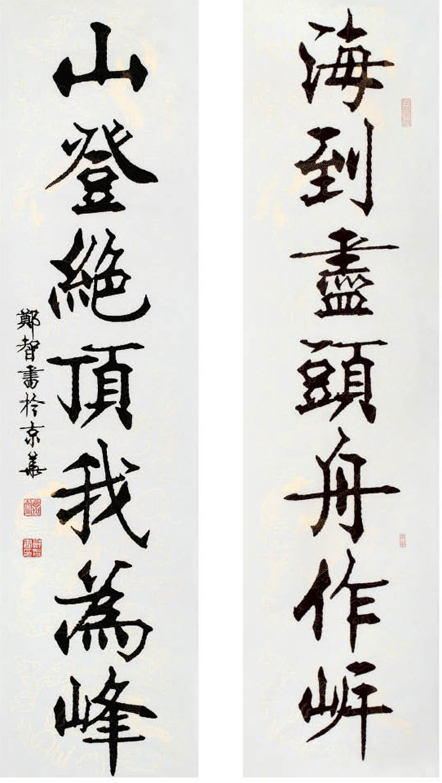 海到盡頭舟作岸
山登絶頂我為峰
鄭智書於京華